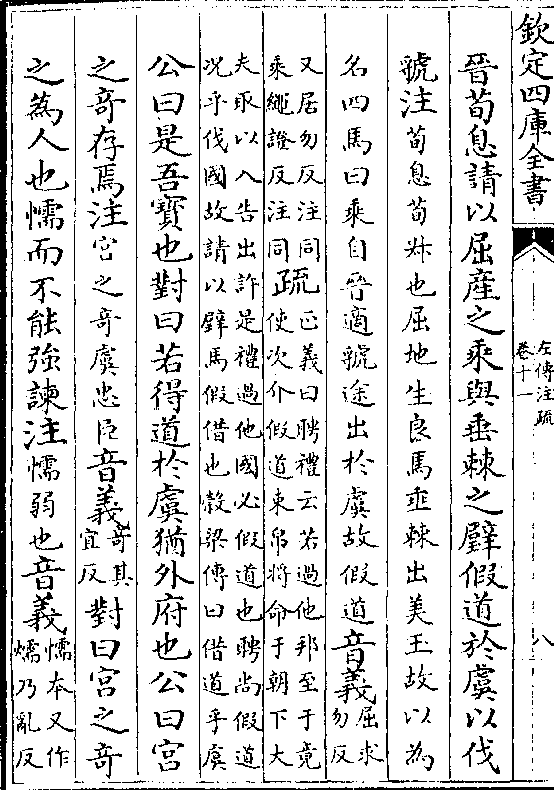 欽定四庫全書
左傳注疏
卷十一
八
晉荀息請以屈產之乘與垂棘之璧假道於虞以伐
虢注荀息荀叔也屈地生良馬垂棘出美玉故以為
名四馬曰乘自晉適虢途出於虞故假道音義屈求
勿反
又居勿反注同
乘繩證反注同疏正義曰聘禮云若過他邦至于竟
使次介假道束帛將命于朝下大
夫取以入告出許是禮過他國必假道也聘尚假道
况乎伐國故請以璧馬假借也穀梁傳曰借道乎虞
公曰是吾寶也對曰若得道於虞猶外府也公曰宮
之奇存焉注宮之奇虞忠臣音義奇其
宜反對曰宮之奇
之為人也懦而不能強諫注懦弱也音義懦本又作
㦬乃亂反